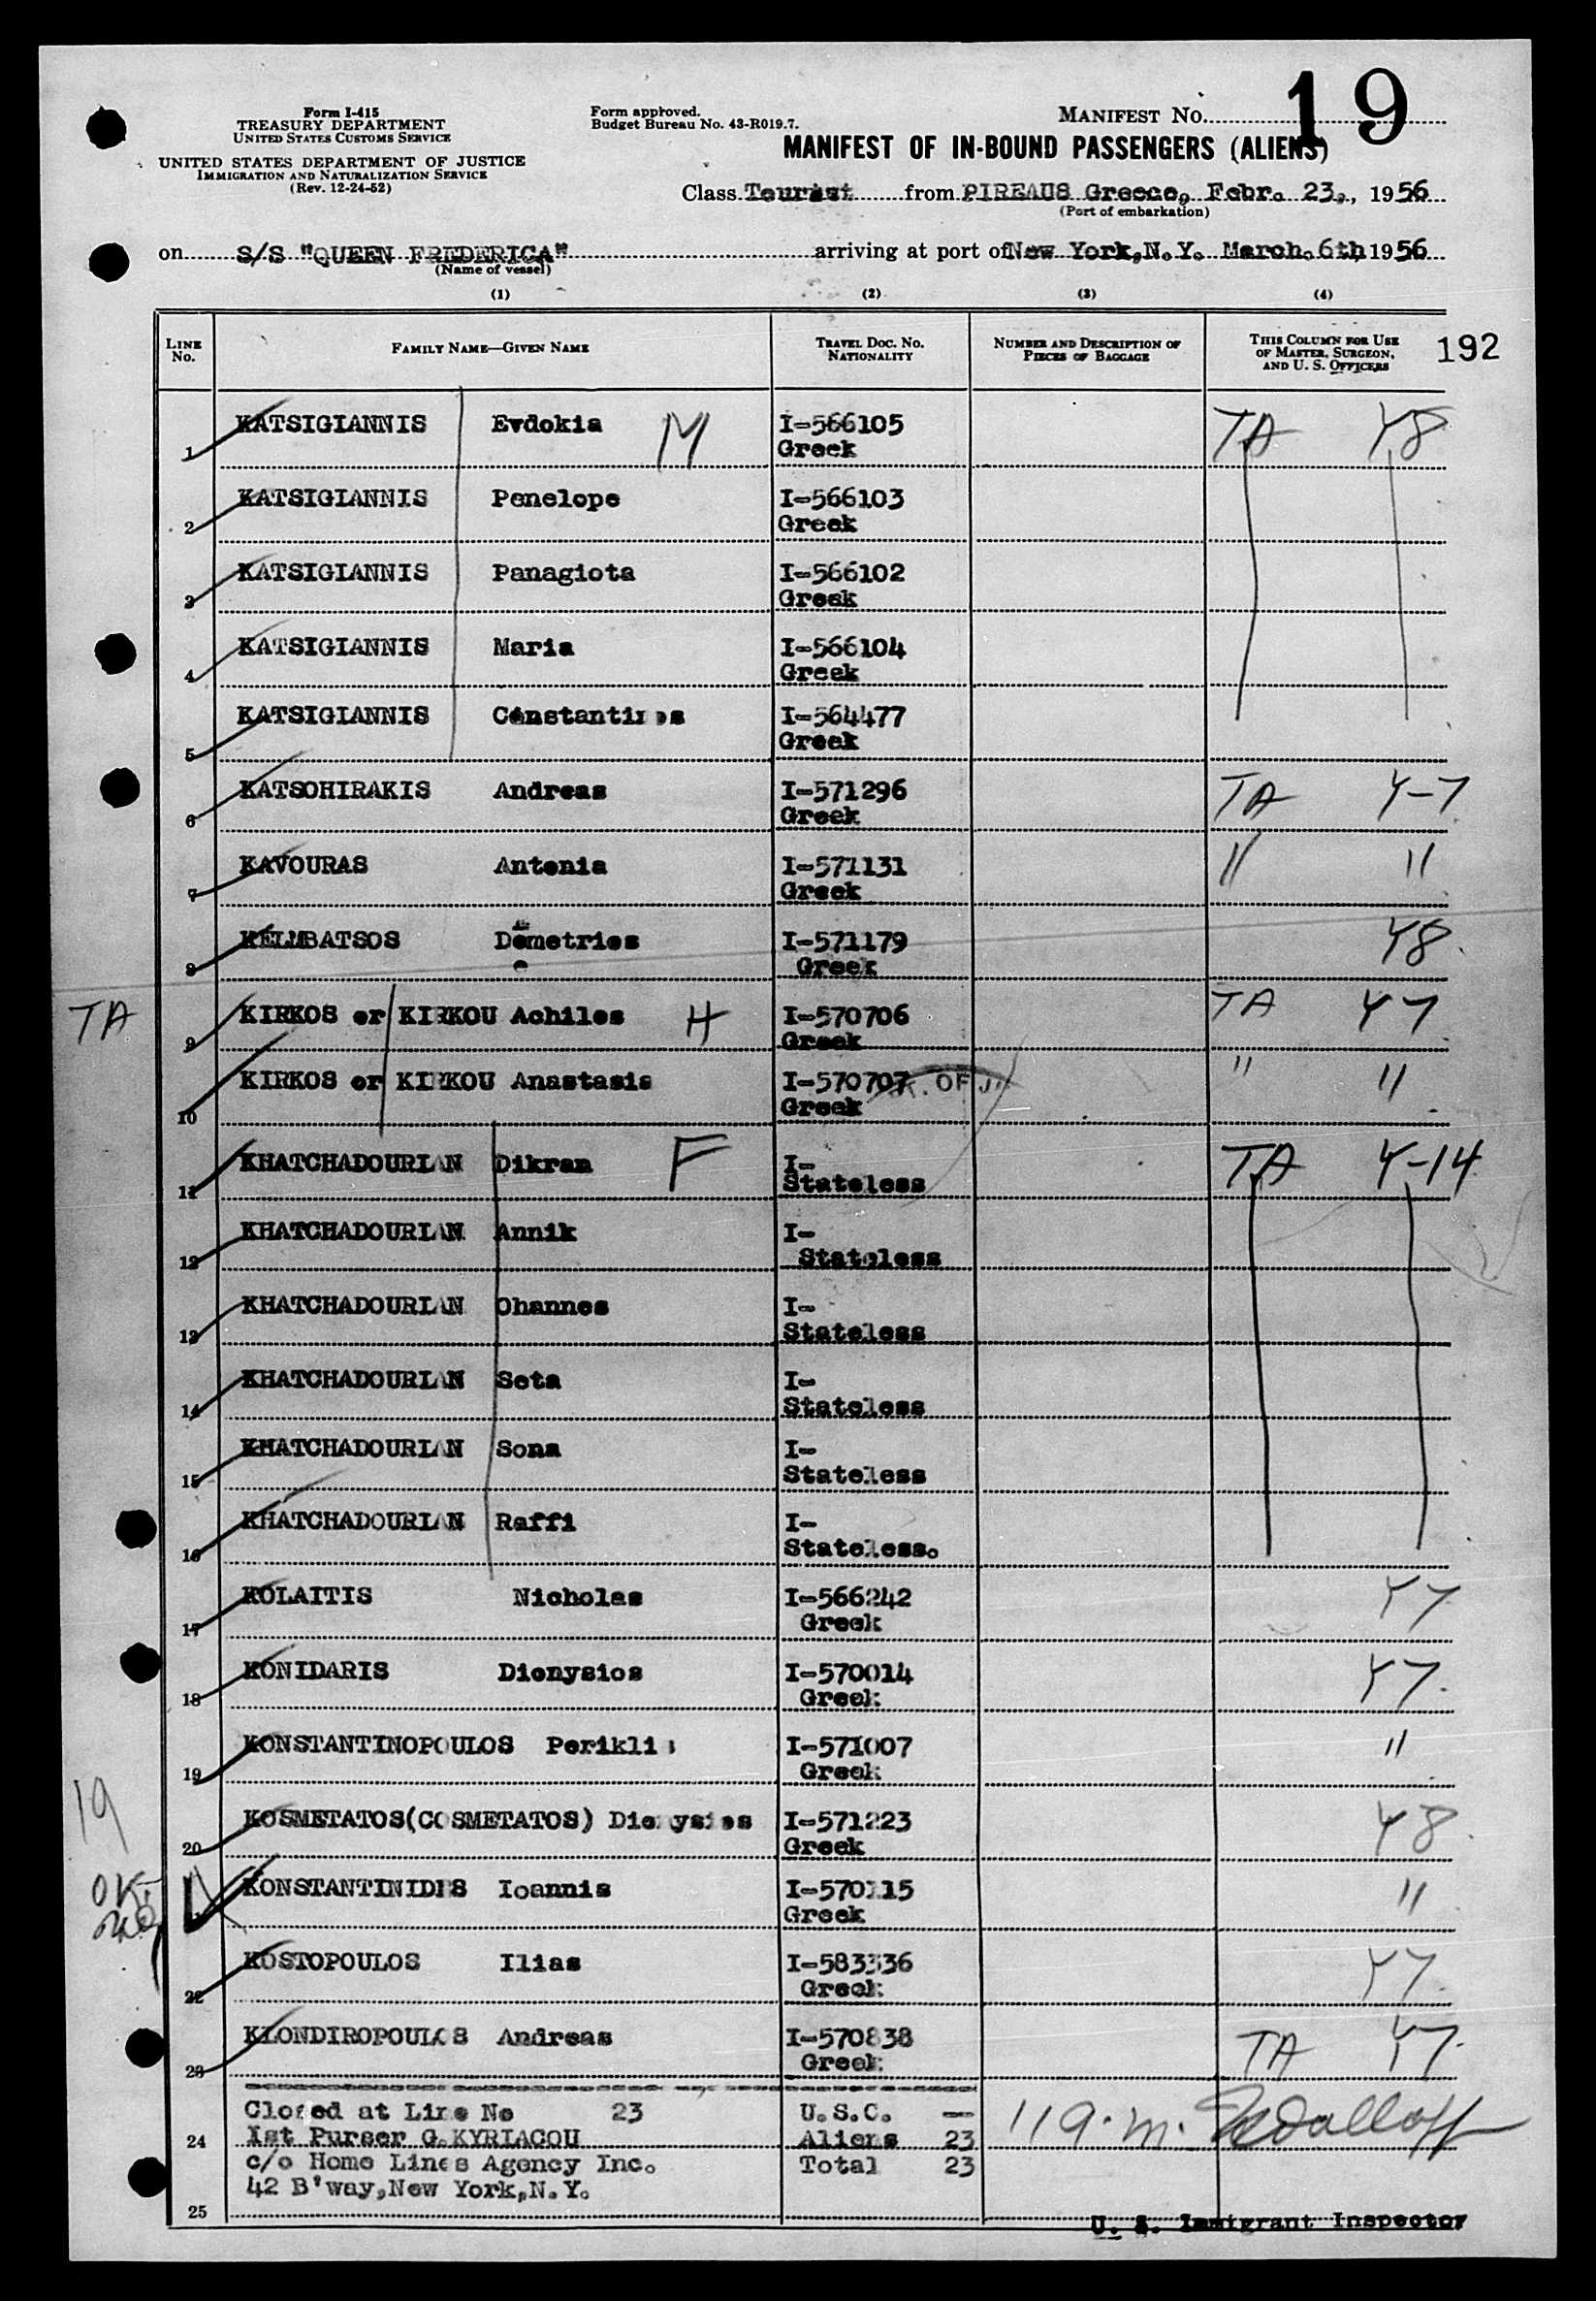 Form I-415
TREASURY DEPARTMENT
UNITED STATES CUSTOMS SERVICE
UNITED STATES DEPARTMENT OF JUSTICE
IMMIGRATION AND NATURALIZATION SERVICE
(Rev. 12-24-52)
Form approved.
Budget Bureau No. 43-R019.7.
MANIFEST No. 19
MANIFEST OF IN-BOUND PASSENGERS (ALIENS)
Class Tourist from PIREAUS Greece, Febr. 23., 1956
(Port of embarkation)
on S/S "QUEEN FREDERICA" arriving at port of New York,N.Y. March.6th 1956
(Name of vessel)
(1) (2) (3) (4)
LINE No. FAMILY NAME—GIVEN NAME TRAVEL DOC. NO. NATIONALITY NUMBER AND DESCRIPTION OF PIECES OF BAGGAGE THIS COLUMN FOR USE OF MASTER, SURGEON, AND U. S. OFFICERS 192
1 KATSIGIANNIS Evdokia M I-566105 TA Y8
Greek
2 KATSIGIANNIS Penelope I-566103
Greek
3 KATSIGIANNIS Panagiota I-566102
Greek
4 KATSIGIANNIS Maria I-566104
Greek
5 KATSIGIANNIS Constantinos I-564477
Greek
6 KATSOHIRAKIS Andreas I-571296 TA Y-7
Greek
7 KAVOURAS Antonia I-571131 " "
Greek
8 KELMBATSOS Demetrios I-571179 Y8
Greek
TA 9 KIRKOS or KIRKOU Achiles H I-570706 TA Y7
Greek
10 KIRKOS or KIRKOU Anastasia I-570707 " "
Greek
11 KHATCHADOURIAN Dikran F I- TA Y-14
Stateless
12 KHATCHADOURIAN Annik I-
Stateless
13 KHATCHADOURIAN Ohannes I-
Stateless
14 KHATCHADOURIAN Seta I-
Stateless
15 KHATCHADOURIAN Sona I-
Stateless
16 KHATCHADOURIAN Raffi I-
Stateless.
17 KOLAITIS Nicholas I-566242 Y7
Greek
18 KONIDARIS Dionysios I-570014 Y7
Greek
19 KONSTANTINOPOULOS Periklis I-571007 "
Greek
19
20 KOSMETATOS(COSMETATOS) Dionysios I-571223 Y8
Greek
OK
KONSTANTINIDES Ioannis I-570115 "
Greek
22 KOSTOPOULOS Ilias I-583336 Y7
Greek
23 KLONDIROPOULOS Andreas I-570838 TA Y7
Greek
Closed at Line No 23 U.S.C. --
24 Ist Purser G.KYRIACOU Aliens 23
c/o Home Lines Agency Inc. Total 23
42 B'way,New York,N.Y.
25
U. S. Immigrant Inspector